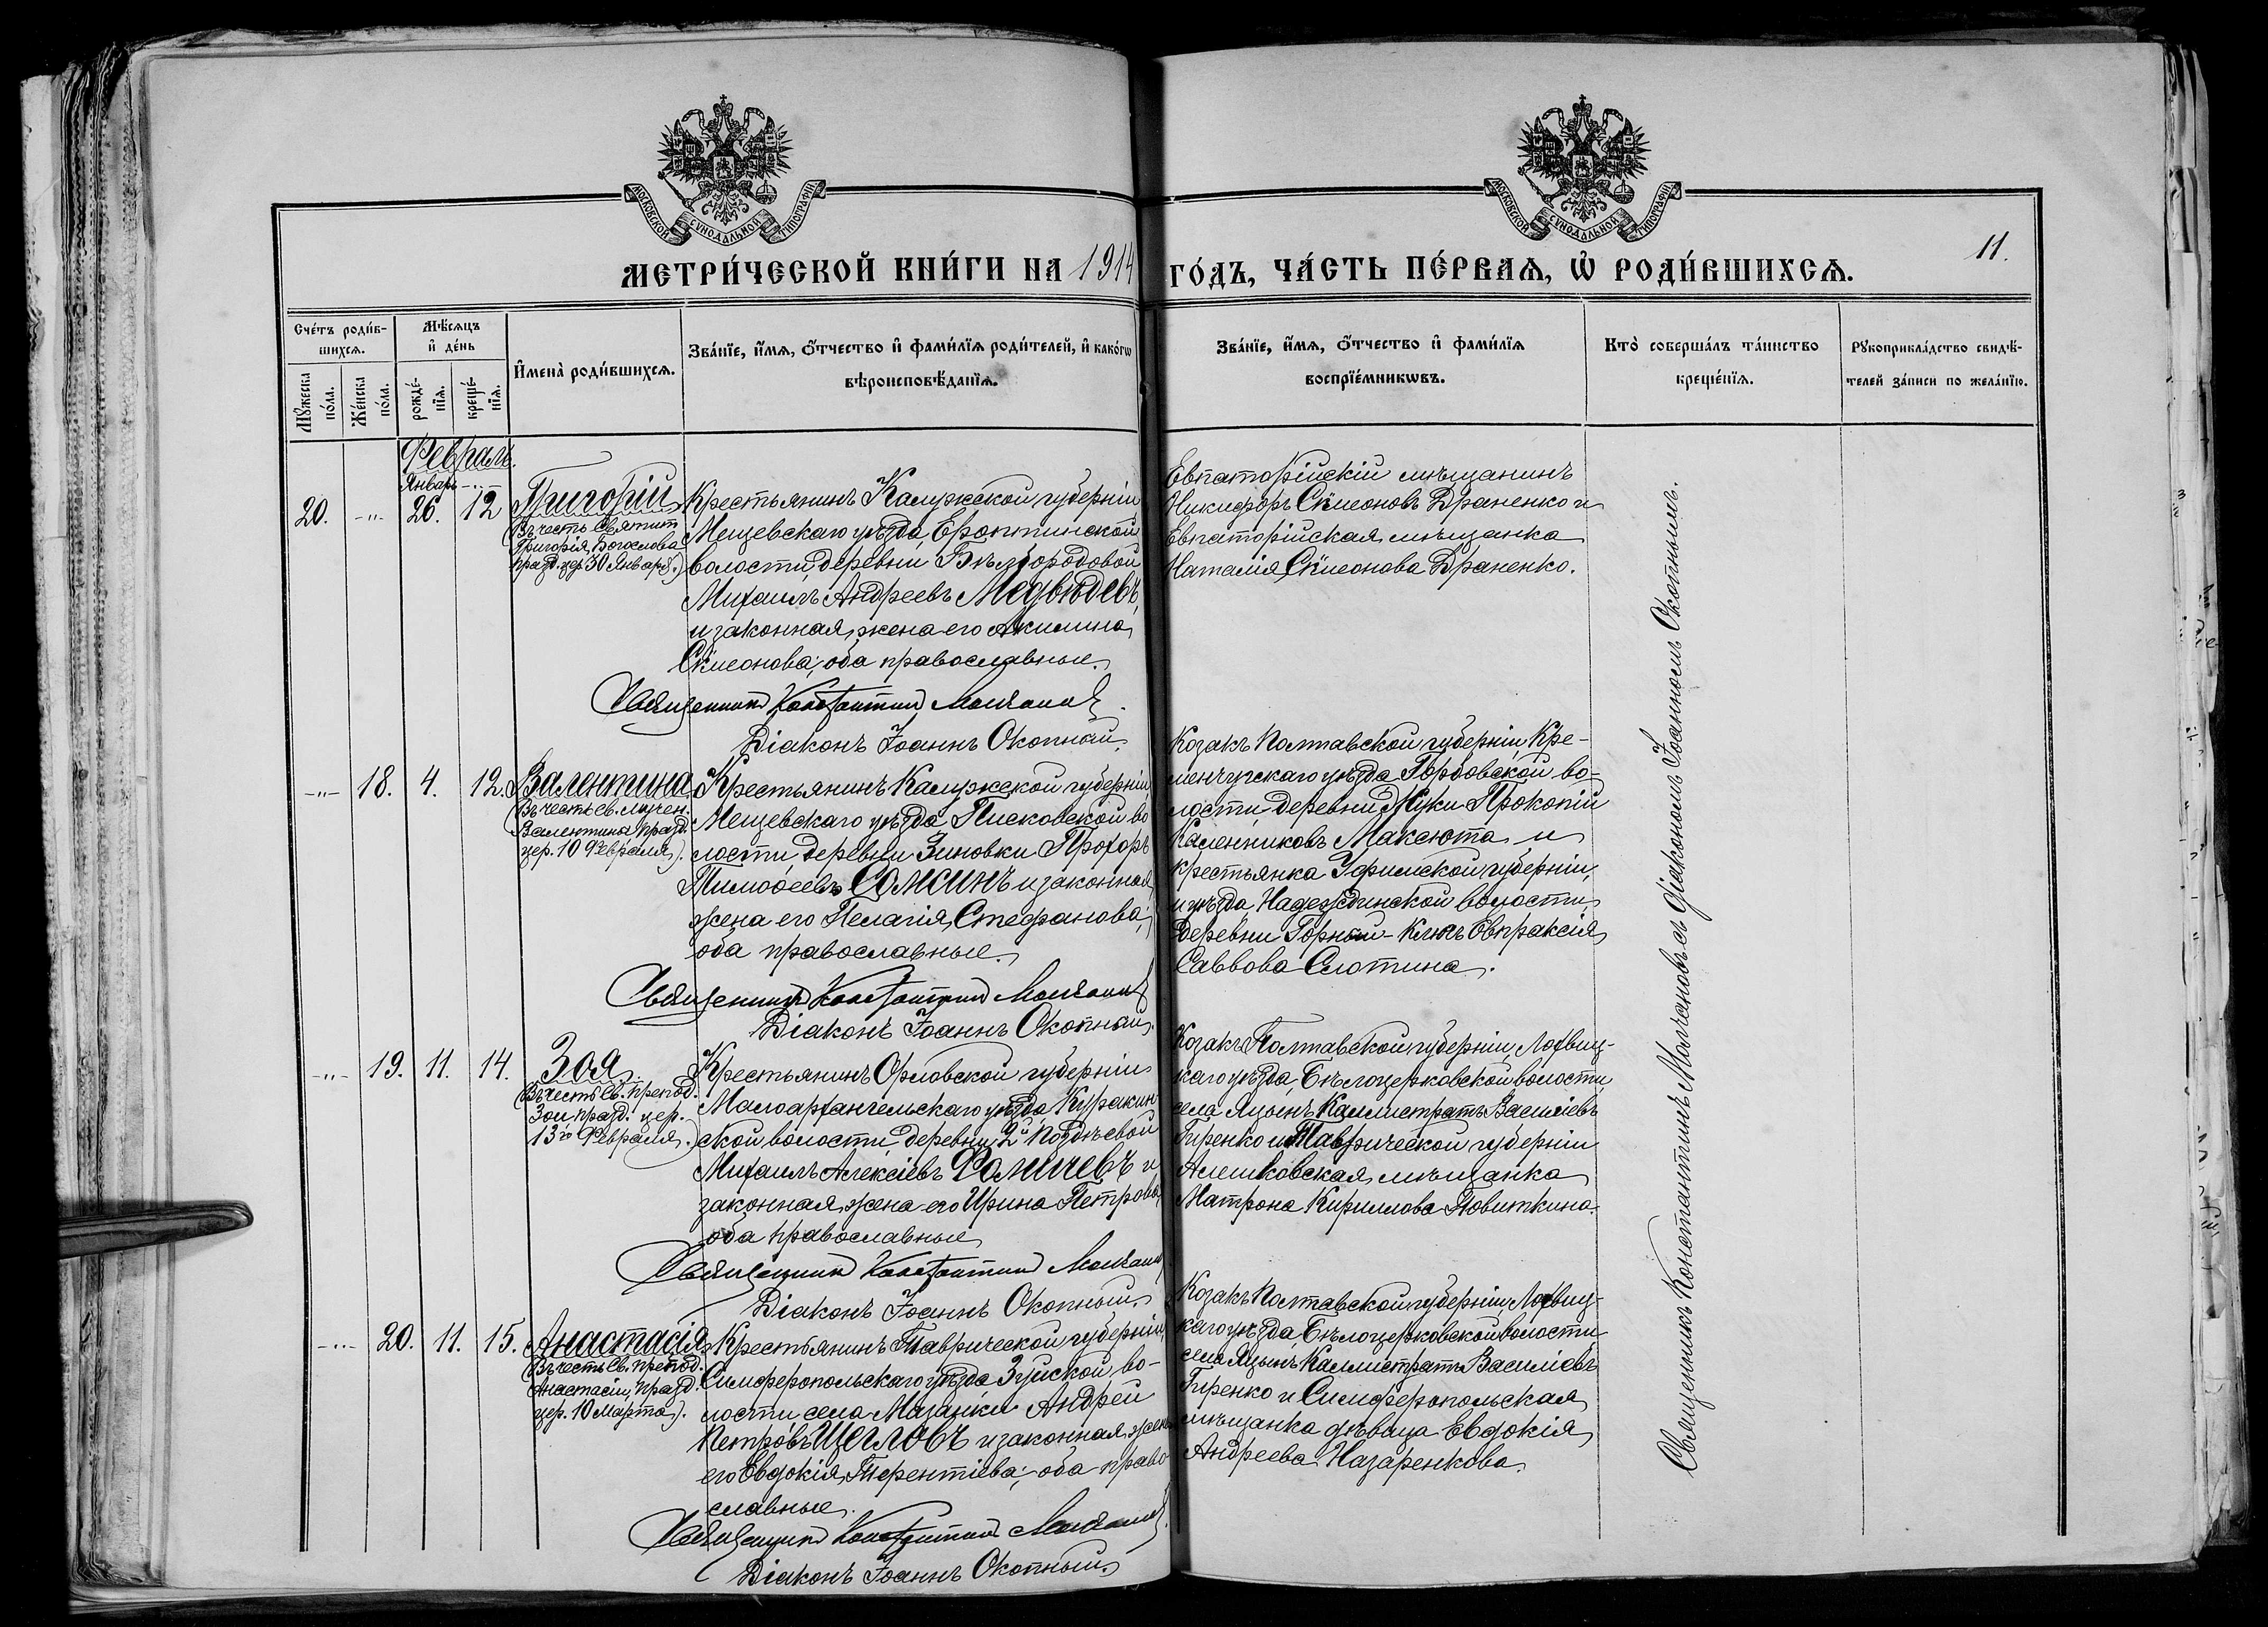 МОСКОВСКОЙ СѴНОДАЛЬНОЙ ТИПОГРАФІИ
МОСКОВСКОЙ СѴНОДАЛЬНОЙ ТИПОГРАФІИ
11.
МЕТРИ́ЧЕСКОЙ КНИ́ГИ НА 1914 ГО́ДЪ, ЧА́СТЬ ПЕ́РВАѦ, Ѽ РОДИ́ВШИХСѦ.
Сче́тъ роди́в-
шихсѧ.
Мѣ́сѧцъ
и҆ де́нь
Мꙋ́жеска
по́ла.
Же́нска
по́ла.
рожде́-
нїѧ.
креще́-
нїѧ.
И҆мена̀ роди́вшихсѧ.
Зва́нїе, и҆́мѧ, ѻ҆́тчество и҆ фами́лїѧ роди́телей, и҆ како́гѡ
вѣроисповѣ́данїѧ.
Зва́нїе, и҆́мѧ, ѻ҆́тчество и҆ фами́лїѧ
воспрїе́мникѡвъ.
Кто̀ соверша́лъ та́инство
креще́нїѧ.
Рꙋкоприкла́дство свидѣ́-
телей за́писи по жела́нїю.
Февраль.
Январь -"-
20. -"- 26. 12
Григорій
(Въ честь Святит.
Григорія Богослова
празд. цер. 30 Января.)
Крестьянинъ Калужской губерніи
Мещевскаго уѣзда, Еропкинской
волости, деревни Бѣлбородовой
Михаилъ Андреевъ Медвѣдевъ,
и законная жена его Акилина
Сѵмеонова; оба православные.
Священникъ Константинъ Молчановъ.
Діаконъ Іоаннъ Окопный.
Евпаторійскій мѣщанинъ
Никифоръ Сѵмеоновъ Драненко и
Евпаторійская мѣщанка
Наталія Сѵмеонова Драненко.
-"- 18. 4. 12.
Валентина
(Въ честь св. мучен.
Валентины, празд.
цер. 10 Февраля).
Крестьянинъ Калужской губерніи
Мещевскаго уѣзда Писковской во
лости, деревни Зиновки Прохоръ
Тимоѳеевъ Сомсинъ и законная
жена его Пелагія Стефанова;
оба православные.
Священникъ Константинъ Молчановъ
Діаконъ Іоаннъ Окопный.
Козакъ Полтавской губерніи, Кре-
менчугскаго уѣзда Горбовской во-
лости, деревни Жуки Прокопій
Калениковъ Максюта и
крестьянка Уфимской губерніи,
и уѣзда, Надеждинской волости,
деревни Горный-Ключъ Евпраксія
Саввова Слотина.
-"- 19. 11. 14.
Зоя.
(Въ честь св. препод.
Зои празд. цер.
13го Февраля.)
Крестьянинъ Орловской губерніи
Малоархангельскаго уѣзда Куракин
ской волости, деревни 2й Подѣевой
Михаилъ Алексіевъ Фомичевъ и
законная жена его Ирина Петрова
оба православные
Священникъ Константинъ Молчановъ
Діаконъ Іоаннъ Окопный.
Козакъ Полтавской губерніи, Лохвиц-
каго уѣзда, Бѣлоцерковской волости,
села Яцынъ Каллистратъ Василіевъ
Гиренко и Таврической губерніи
Алешковская мѣщанка
Матрона Кириллова Повиткина.
-"- 20. 11. 15.
Анастасія
(Въ честь Св. препод.
Анастасіи, празд.
цер. 10 Марта).
Крестьянинъ Таврической губерніи
Симферопольскаго уѣзда Зуйской во-
лости села Мазанки Андрей
Петровъ Щегловъ и законная жена
его Евдокія Терентіева; оба право
славные.
Священникъ Константинъ Молчановъ.
Діаконъ Іоаннъ Окопный.
Козакъ Полтавской губерніи, Лохвиц-
каго уѣзда, Бѣлоцерковской волости
села Яцынъ Каллистратъ Василіевъ
Гиренко и Симферопольская
мѣщанка дѣвица Евдокія
Андреева Назаренкова.
Священникъ Константинъ Молчановъ съ діакономъ Іоанномъ Окопнымъ.